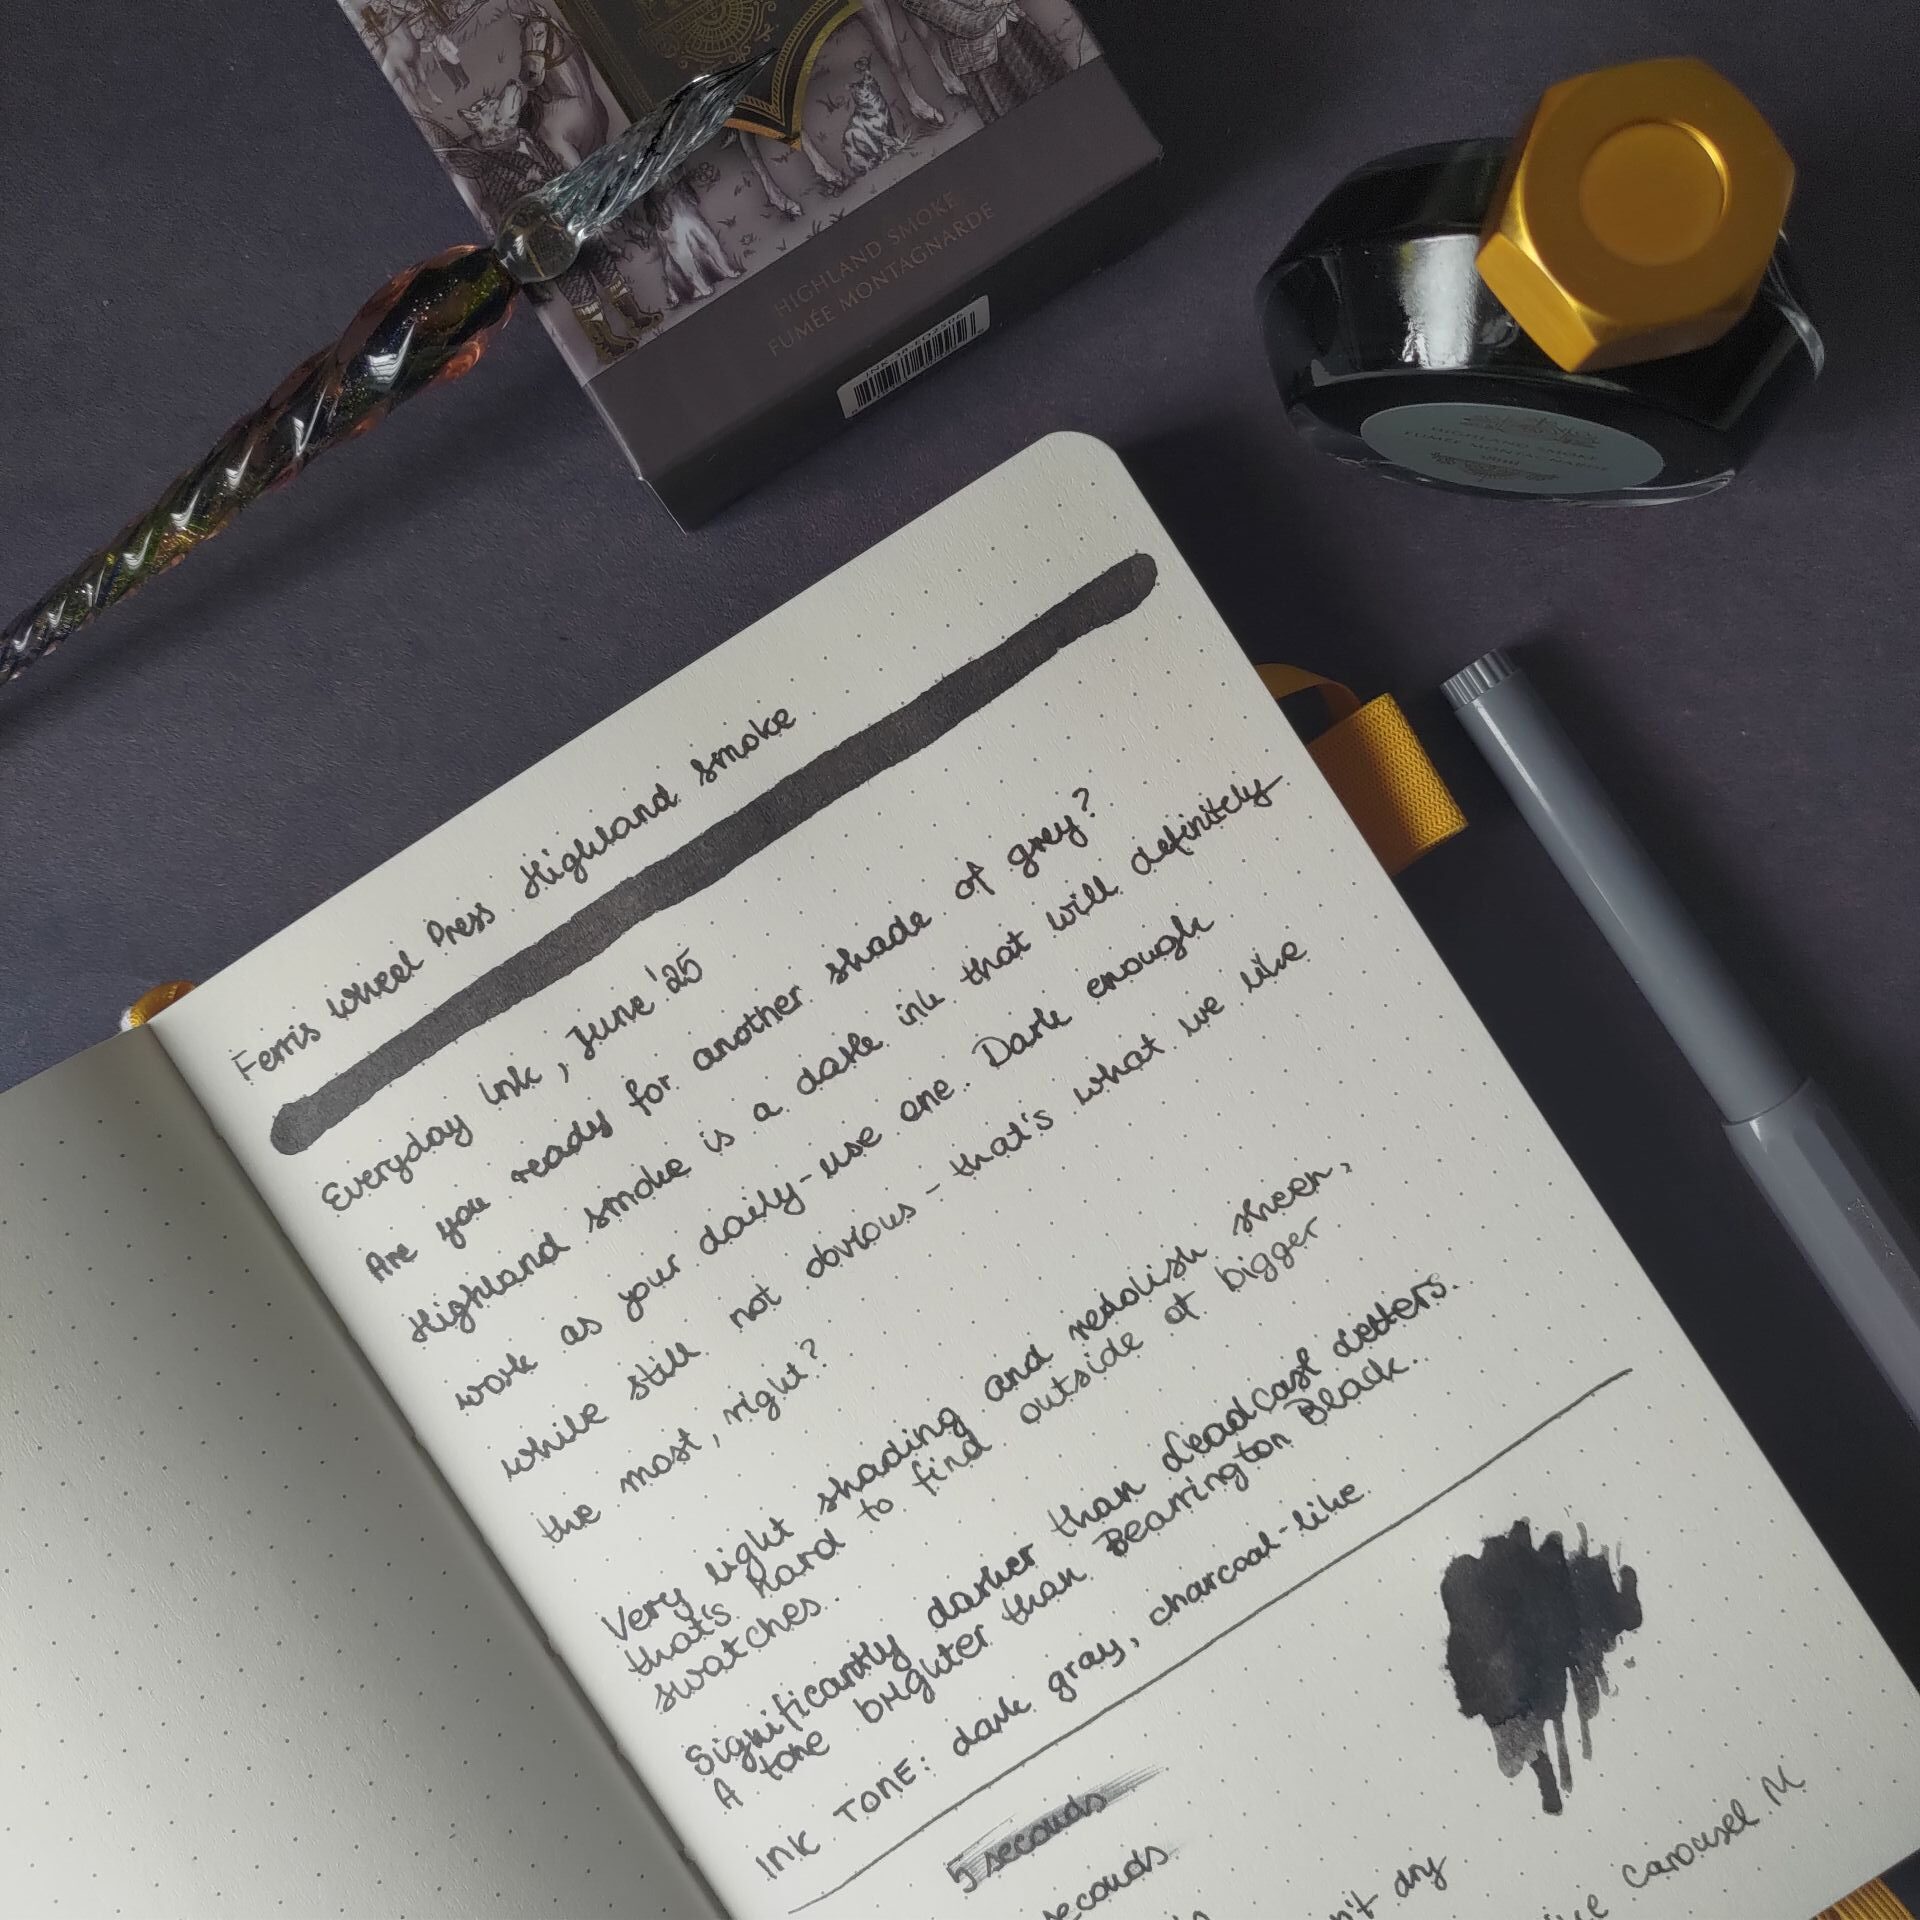 HIGHLAND SMOKE
FUMÉE MONTAGNARDE
HIGHLAND SMOKE
FUMÉE MONTAGNARDE
Ferris Wheel Press Highland Smoke
Everyday ink, June '25
Are you ready for another shade of grey?
Highland smoke is a dark ink that will definitely
work as your daily-use one. Dark enough
while still not obvious - that's what we like
the most, right?
Very light shading and reddish sheen,
that's hard to find outside of bigger
swatches.
Significantly darker than deadcast letters.
A tone brighter than Bearrington Black.
INK TONE: dark gray, charcoal-like
5 seconds
seconds
dry
Carousel M